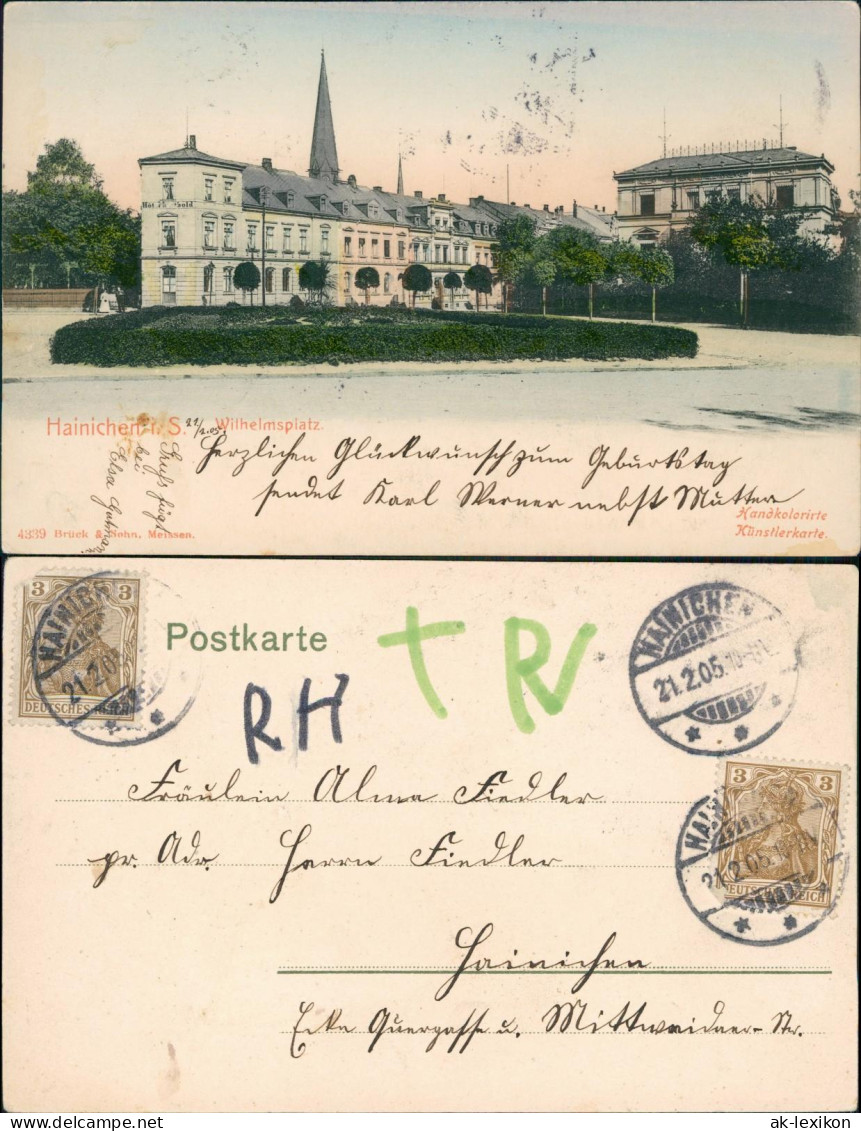 Hainichen i. S. Wilhelmsplatz.
21/2.05.
Herzlichen Glückwunsch zum Geburtstag
sendet Karl Werner nebst Mutter
Gruß fügt
bei
Elsa
4339 Bruck & Sohn, Meissen.
Handkolorirte
Künstlerkarte.
3 3
DEUTSCHES REICH
HAINICHEN
21.2.05
Postkarte
RH
HAINICHEN
21.2.05
3 3
DEUTSCHES REICH
21.2.05
Fräulein Alma Fiedler
pr. Adr. Herrn Fiedler
Hainichen
Ecke Quergasse u. Mittweidaer-Str.
ak-lexikon